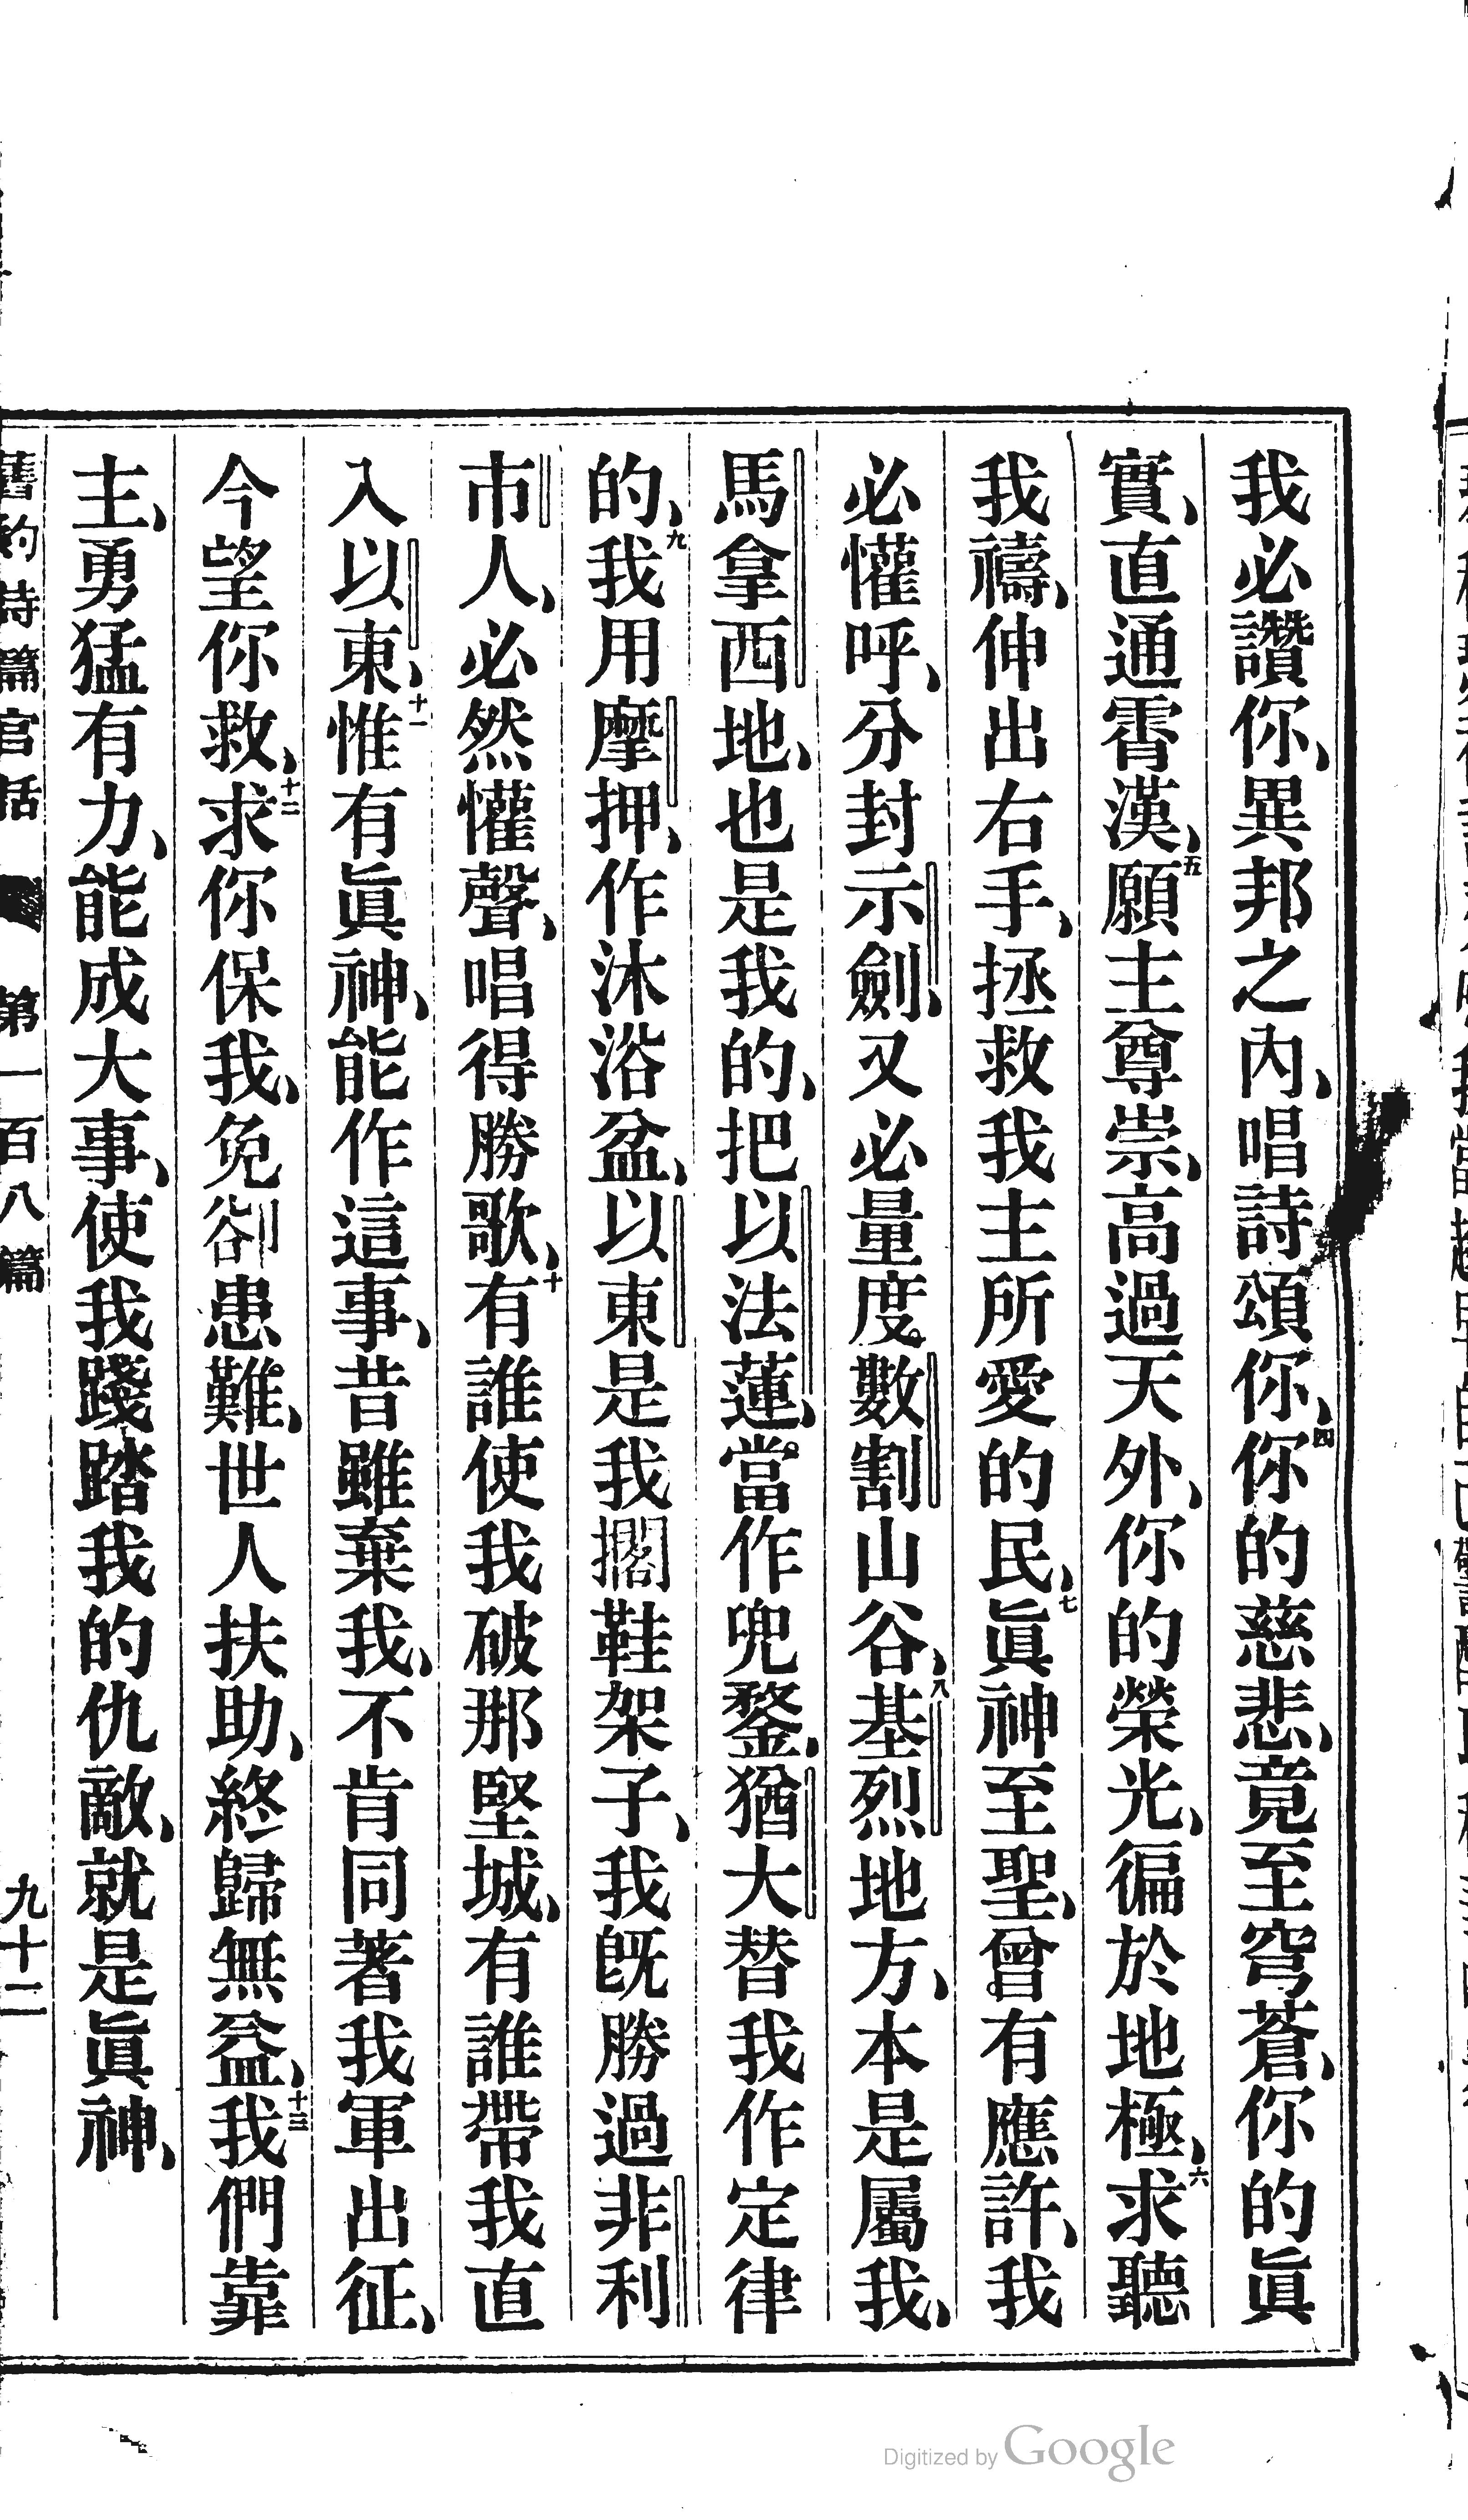 我必讚你、異邦之內、唱詩頌你、四你的慈悲、竟至穹蒼、你的眞
實、直通霄漢、五願主尊崇、高過天外、你的榮光、徧於地極、六求聽
我禱、伸出右手、拯救我主所愛的民、七眞神至聖、曾有應許、我
必懽呼、分封示劍、又必量度數割山谷、八基烈地方、本是屬我、
馬拿西地、也是我的、把以法蓮、當作兜鍪、猶大替我作定律
的、九我用摩押、作沐浴盆、以東是我擱鞋架子、我旣勝過非利
市人、必然懽聲、唱得勝歌、十有誰使我破那堅城、有誰帶我直
入以東、十一惟有眞神、能作這事、昔雖棄我、不肯同著我軍出征、
今望你救、十二求你保我、免卻患難、世人扶助、終歸無益、十三我們靠
主、勇猛有力、能成大事、使我踐踏我的仇敵、就是眞神、
舊約詩篇官話 第一百八篇 九十二
Digitized by Google